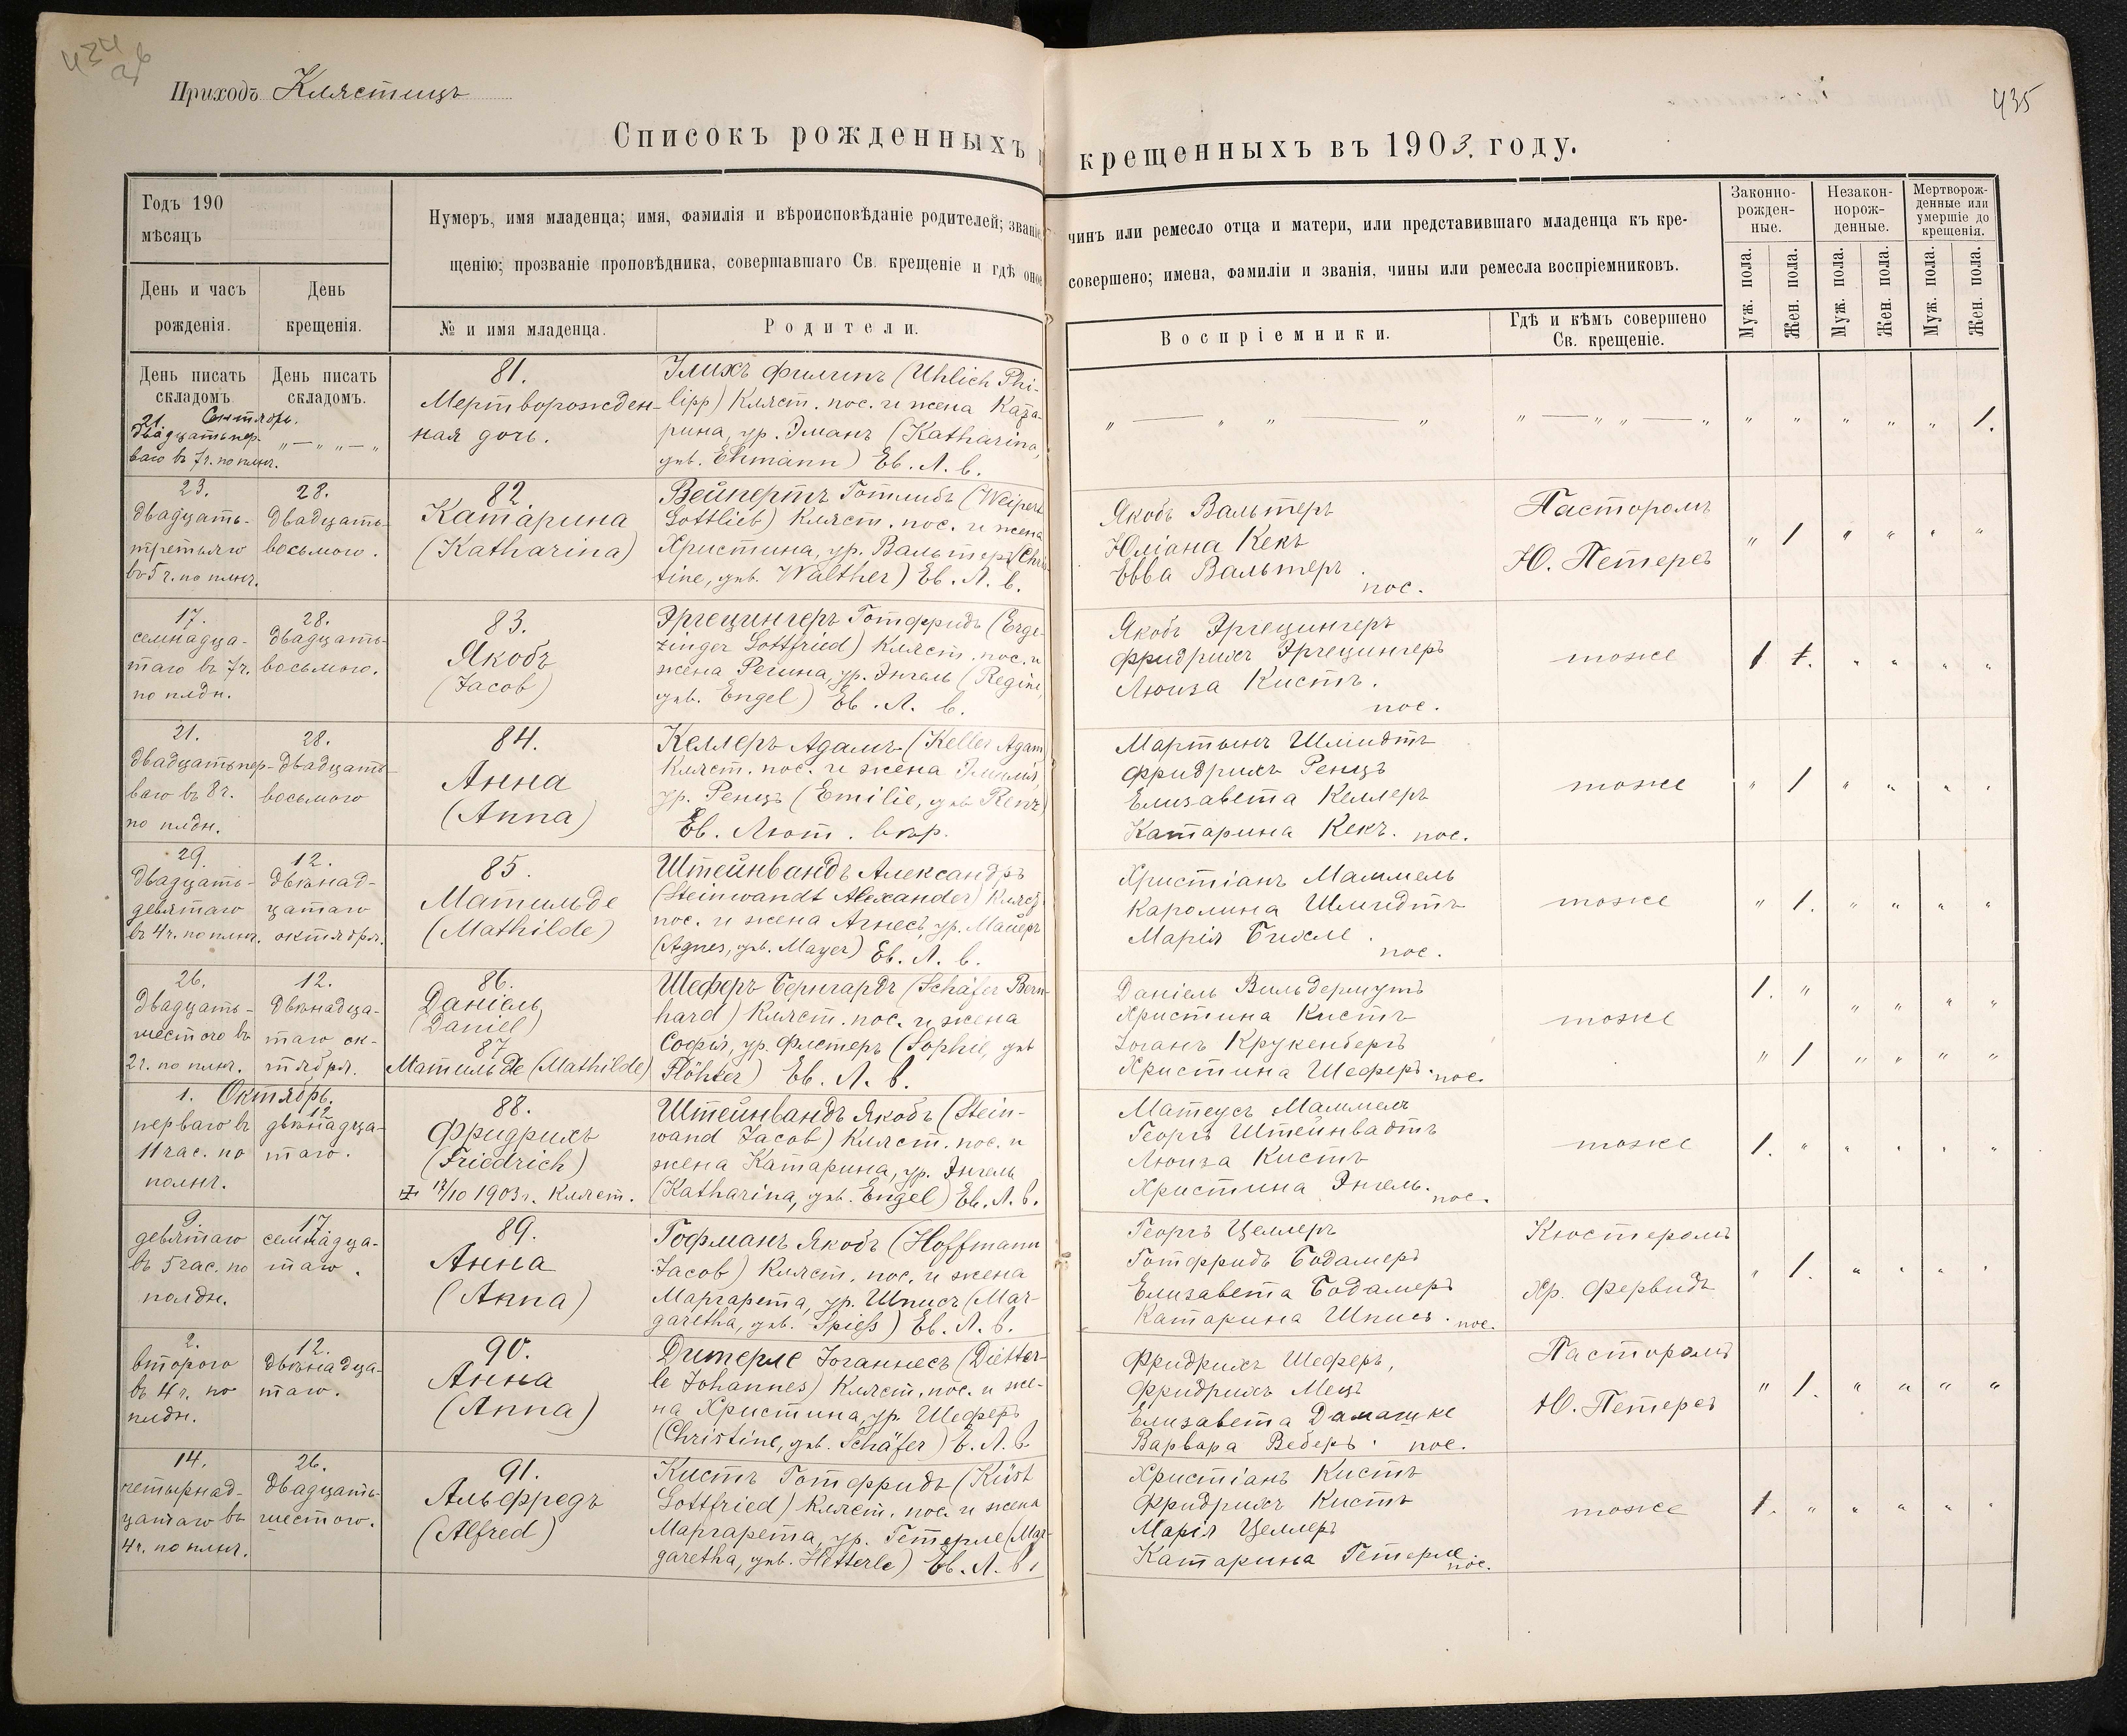 434
об
Приходъ Клястицъ
435
Списокъ рожденныхъ и крещенныхъ въ 1903. году.
Годъ 190
мѣсяцъ
День и часъ
рожденія.
День
крещенія.
Нумеръ, имя младенца; имя, фамилія и вѣроисповѣданіе родителей; званіе, чинъ или ремесло отца и матери, или представившаго младенца къ кре-
щенію; прозваніе проповѣдника, совершавшаго Св. крещеніе и гдѣ оное совершено; имена, фамиліи и званія, чины или ремесла воспріемниковъ.
№ и имя младенца.
Родители.
Воспріемники.
Гдѣ и кѣмъ совершено
Св. крещеніе.
Законно-
рожден-
ные.
Незакон-
норож-
денные.
Мертворож-
денные или
умершіе до
крещенія.
Муж. пола.
Жен. пола.
Муж. пола.
Жен. пола.
Муж. пола.
Жен. пола.
День писать
складомъ.
День писать
складомъ.
21. Сентябрь.
двадцатьпер-
ваго въ 7ч. по плнч.
" — " " — "
81.
Мертворожден-
ная дочь.
Улихъ Филипъ (Uhlich Phi-
lipp) Кляст. пос. и жена Ката-
рина, ур. Эманъ (Katharina,
gнb. Ehmann) Ев. Л. в.
" — " " — "
" — " " — "
" " " " " 1.
23.
двадцать-
третьяго
въ 5 ч. по плнч.
28.
двадцать-
восьмого.
82.
Катарина
(Katharina)
Вейпертъ Готлибъ (Weipert
Gottlieb) Кляст. пос. и жена
Христина, ур. Вальтеръ (Chris-
tine, gнb. Walther) Ев. Л. в.
Якобъ Вальтеръ
Юліана Кекъ
Евва Вальтеръ.
пос.
Пасторомъ
Ю. Петерсъ
" 1 " " " "
17.
семнадца-
таго въ 7ч.
по плдн.
28.
двадцать-
восьмого.
83.
Якобъ
(Jacob)
Эргецингеръ Готфридъ (Erge-
zinger Gottfried) Кляст. пос. и
жена Регина, ур. Энгель (Regine,
gнb. Engel) Ев. Л. в.
Якобъ Эргецингеръ
Фридрихъ Эргецингеръ
Люиза Кистъ.
пос.
тоже
1 1. " " " "
21.
двадцатьпер-
ваго въ 8ч.
по плдн.
28.
двадцать-
восьмого
84.
Анна
(Anna)
Келлеръ Адамъ (Keller Adam)
Кляст. пос. и жена Эмилія,
ур. Ренцъ (Emilie, gнb. Renz)
Ев. Лют. вѣр.
Мартынъ Шмидтъ
Фридрихъ Ренцъ
Елизавета Келлеръ
Катарина Кекъ. пос.
тоже
" 1 " " " "
29.
двадцать-
девятаго
въ 4ч. по плнч.
12.
двѣнад-
цатаго
октября.
85.
Матильде
(Mathilde)
Штейнвандъ Александръ
(Steinwandt Alexander) Кляст.
пос. и жена Агнесъ, ур. Майеръ
(Agnes, gнb. Mayer) Ев. Л. в.
Христіанъ Маммель
Каролина Шмидтъ
Марія Бисле.
пос.
тоже
" 1. " " " "
26.
двадцать-
шестого въ
2ч. по плнч.
12.
двѣнадца-
таго ок-
тября.
86.
Даніель
(Daniel)
87
Матильде (Mathilde)
Шеферъ Бернгардъ (Schäfer Bern-
hard) Кляст. пос. и жена
Софія, ур. Флетеръ (Sophie, gнb
Flöhter) Ев. Л. в.
Даніель Вильдермутъ
Христина Кистъ
Іоганъ Крукенбергъ
Христина Шеферъ. пос.
тоже
1. " " " " "
" 1 " " " "
1. Октябрь.
перваго въ
11 час. по
полнч.
12
двѣнадца-
таго.
88.
Фридрихъ
(Friedrich)
12/10 1903 г. Кляст.
Штейнвандъ Якобъ (Stein-
wand Jacob) Кляст. пос. и
жена Катарина, ур. Энгель
(Katharina, gнb. Engel) Ев. Л. в.
Матеусъ Маммель
Георгъ Штейнвадтъ
Люиза Кистъ
Христина Энгель. пос.
тоже
1. " " " " "
9.
девятаго
въ 5 час. по
полдн.
17.
семнадца-
таго.
89.
Анна
(Anna)
Гофманъ Якобъ (Hoffmann
Jacob) Кляст. пос. и жена
Маргарета, ур. Шписъ (Mar-
garetha, gнb. Spieß) Ев. Л. в.
Георгъ Целлеръ
Готфридъ Бодамеръ
Елизавета Бодамеръ
Катарина Шписъ. пос.
Кюстеромъ
Хр. Фервидъ
" 1. " " " "
2.
второго
въ 4ч. по
плдн.
12.
двѣнадца-
таго.
90.
Анна
(Anna)
Дитерле Іоганнесъ (Dietter-
le Johannes) Кляст. пос. и же-
на Христина, ур. Шеферъ
(Christine, gнb. Schäfer) Е. Л. в.
Фридрихъ Шеферъ,
Фридрихъ Мецъ
Елизавета Дамашке
Варвара Веберъ. пос.
Пасторомъ
Ю. Петерсъ
" 1. " " " "
14.
четырнад-
цатаго въ
4ч. по плнч.
26.
двадцать-
шестого.
91.
Альфредъ
(Alfred)
Кистъ Готфридъ (Küst
Gottfried) Кляст. пос. и жена
Маргарета, ур. Гетерле (Mar-
garetha, gнb. Hetterle) Ев. Л. в.
Христіанъ Кистъ
Фридрихъ Кистъ
Марія Целлеръ
Катарина Гетерле
пос.
тоже
1. " " " " "